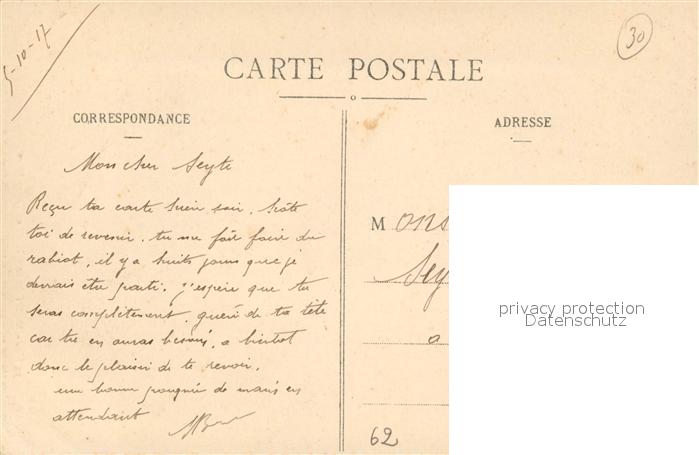 5-10-17
30
CARTE POSTALE
CORRESPONDANCE
Mon cher Seyte
Reçu ta carte hier soir, hâte
toi de revenir, tu me fait faire du
rabiot, il y a huits jours que je
devrais etre parti. j'espère que tu
seras complètement guéri de ta tête
car tu en auras besoin, a bientot
donc le plaisir de te revoir.
une bonne poignée de mains en
attendant
ADRESSE
Mons
Sey
a
62
privacy protection
Datenschutz